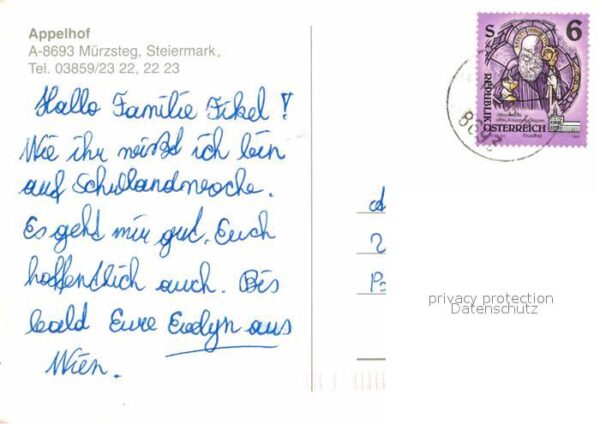 Appelhof
A-8693 Mürzsteg, Steiermark.
Tel. 03859/23 22, 22 23
Hallo Familie Fikel !
Wie ihr meißd ich bin
auf Schullandwoche.
Es gehd mir gud. Euch
hoffendlich auch. Bis
bald Eure Evelyn aus
Wien.
S 6
REPUBLIK
ÖSTERREICH
8693
privacy protection
Datenschutz